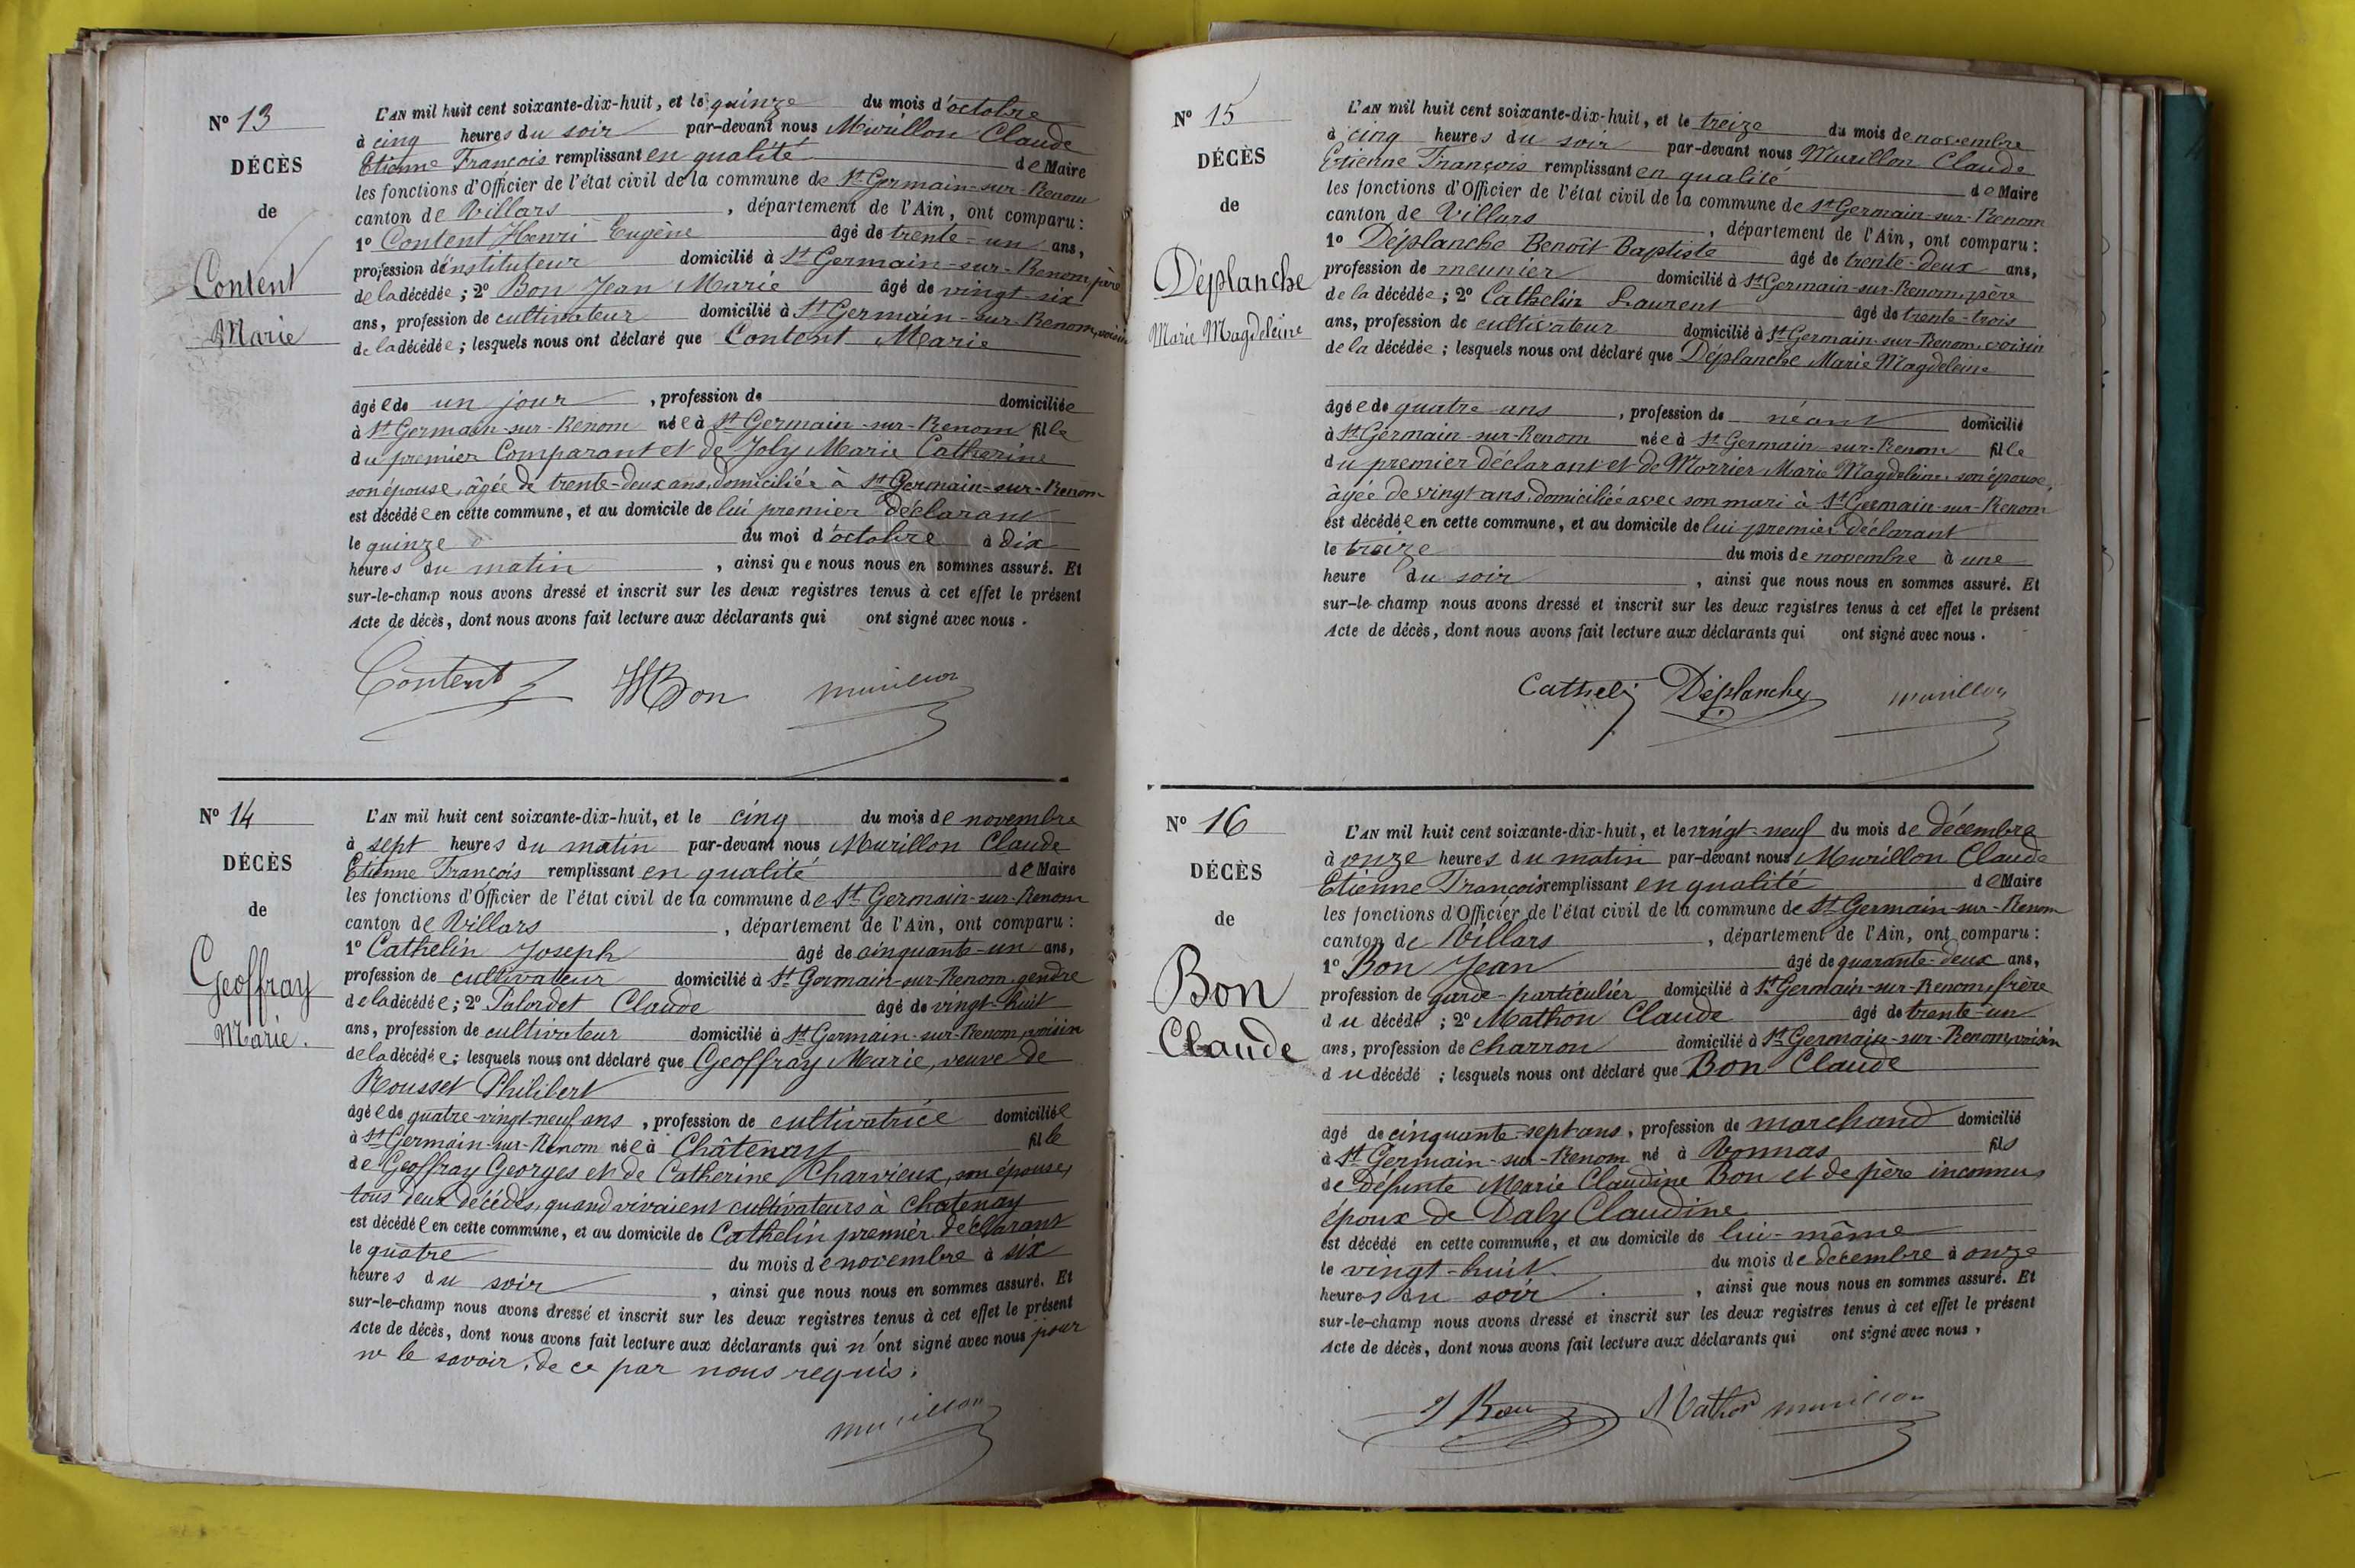 N° 13
DÉCÈS
de
Content
Marie
L'AN mil huit cent soixante-dix-huit, et le quinze du mois d'octobre
à cinq heures du soir par-devant nous Murillon Claude
Etienne François remplissant en qualité de Maire
les fonctions d'Officier de l'état civil de la commune de St Germain-sur-Renom
canton de Villars, département de l'Ain, ont comparu :
1° Content Henri Eugène âgé de trente-un ans,
profession d'instituteur domicilié à St Germain-sur-Renom, père
de la décédée ; 2° Bon Jean Marie âgé de vingt-six
ans, profession de cultivateur domicilié à St Germain-sur-Renom, voisin
de la décédée ; lesquels nous ont déclaré que Content Marie
âgée de un jour, profession de domiciliée
à St Germain-sur-Renom née à St Germain-sur-Renom fille
du premier Comparant et de Joly Marie Catherine
son épouse, âgée de trente-deux ans, domiciliée à St Germain-sur-Renom
est décédée en cette commune, et au domicile de lui premier déclarant
le quinze du moi d'octobre à dix
heures du matin, ainsi que nous nous en sommes assuré. Et
sur-le-champ nous avons dressé et inscrit sur les deux registres tenus à cet effet le présent
Acte de décès, dont nous avons fait lecture aux déclarants qui ont signé avec nous.
Content Bon Murillon
N° 14
DÉCÈS
de
Geoffray
Marie.
L'AN mil huit cent soixante-dix-huit, et le cinq du mois de novembre
à sept heures du matin par-devant nous Murillon Claude
Etienne François remplissant en qualité de Maire
les fonctions d'Officier de l'état civil de la commune de St Germain-sur-Renom
canton de Villars, département de l'Ain, ont comparu :
1° Cathelin Joseph âgé de cinquante-un ans,
profession de cultivateur domicilié à St Germain-sur-Renom, gendre
de la décédée ; 2° Palordet Claude âgé de vingt-huit
ans, profession de cultivateur domicilié à St Germain-sur-Renom, voisin
de la décédée ; lesquels nous ont déclaré que Geoffray Marie, veuve de
Rousset Philibert
âgée de quatre-vingt-neuf ans, profession de cultivatrice domiciliée
à St Germain-sur-Renom née à Châtenay fille
de Geoffray Georges et de Catherine Charvieux, son épouse,
tous deux décédés, quand vivaient cultivateurs à Chatenay
est décédée en cette commune, et au domicile de Cathelin premier déclarant
le quatre du mois de novembre à six
heures du soir, ainsi que nous nous en sommes assuré. Et
sur-le-champ nous avons dressé et inscrit sur les deux registres tenus à cet effet le présent
Acte de décès, dont nous avons fait lecture aux déclarants qui n'ont signé avec nous pour
ne le savoir, de ce par nous requis.
Murillon
N° 15
DÉCÈS
de
Déplanche
Marie Magdeleine
L'AN mil huit cent soixante-dix-huit, et le treize du mois de novembre
à cinq heures du soir par-devant nous Murillon Claude
Etienne François remplissant en qualité de Maire
les fonctions d'Officier de l'état civil de la commune de St Germain-sur-Renom
canton de Villars, département de l'Ain, ont comparu :
1° Déplanche Benoît Baptiste âgé de trente-deux ans,
profession de meunier domicilié à St Germain-sur-Renom, père
de la décédée ; 2° Cathelin Laurent âgé de trente-trois
ans, profession de cultivateur domicilié à St Germain-sur-Renom, voisin
de la décédée ; lesquels nous ont déclaré que Déplanche Marie Magdeleine
âgée de quatre ans, profession de néant domicilié
à St Germain-sur-Renom née à St Germain-sur-Renom fille
du premier déclarant et de Morrier Marie Magdeleine, son épouse,
âgée de vingt ans, domiciliée avec son mari à St Germain-sur-Renom
est décédée en cette commune, et au domicile de lui premier déclarant
le treize du mois de novembre à une
heure du soir, ainsi que nous nous en sommes assuré. Et
sur-le-champ nous avons dressé et inscrit sur les deux registres tenus à cet effet le présent
Acte de décès, dont nous avons fait lecture aux déclarants qui ont signé avec nous.
Cathelin Déplanche Murillon
N° 16
DÉCÈS
de
Bon
Claude
L'AN mil huit cent soixante-dix-huit, et le vingt-neuf du mois de décembre
à onze heures du matin par-devant nous Murillon Claude
Etienne François remplissant en qualité de Maire
les fonctions d'Officier de l'état civil de la commune de St Germain-sur-Renom
canton de Villars, département de l'Ain, ont comparu :
1° Bon Jean âgé de quarante-deux ans,
profession de garde-particulier domicilié à St Germain-sur-Renom, frère
du décédé ; 2° Mathon Claude âgé de trente-un
ans, profession de charron domicilié à St Germain-sur-Renom, voisin
du décédé ; lesquels nous ont déclaré que Bon Claude
âgé de cinquante-sept ans, profession de marchand domicilié
à St Germain-sur-Renom né à Vonnas fils
de défunte Marie Claudine Bon et de père inconnu,
époux de Daly Claudine
est décédé en cette commune, et au domicile de lui-même
le vingt-huit du mois de decembre à onze
heures du soir, ainsi que nous nous en sommes assuré. Et
sur-le-champ nous avons dressé et inscrit sur les deux registres tenus à cet effet le présent
Acte de décès, dont nous avons fait lecture aux déclarants qui ont signé avec nous,
J Bon Mathon Murillon